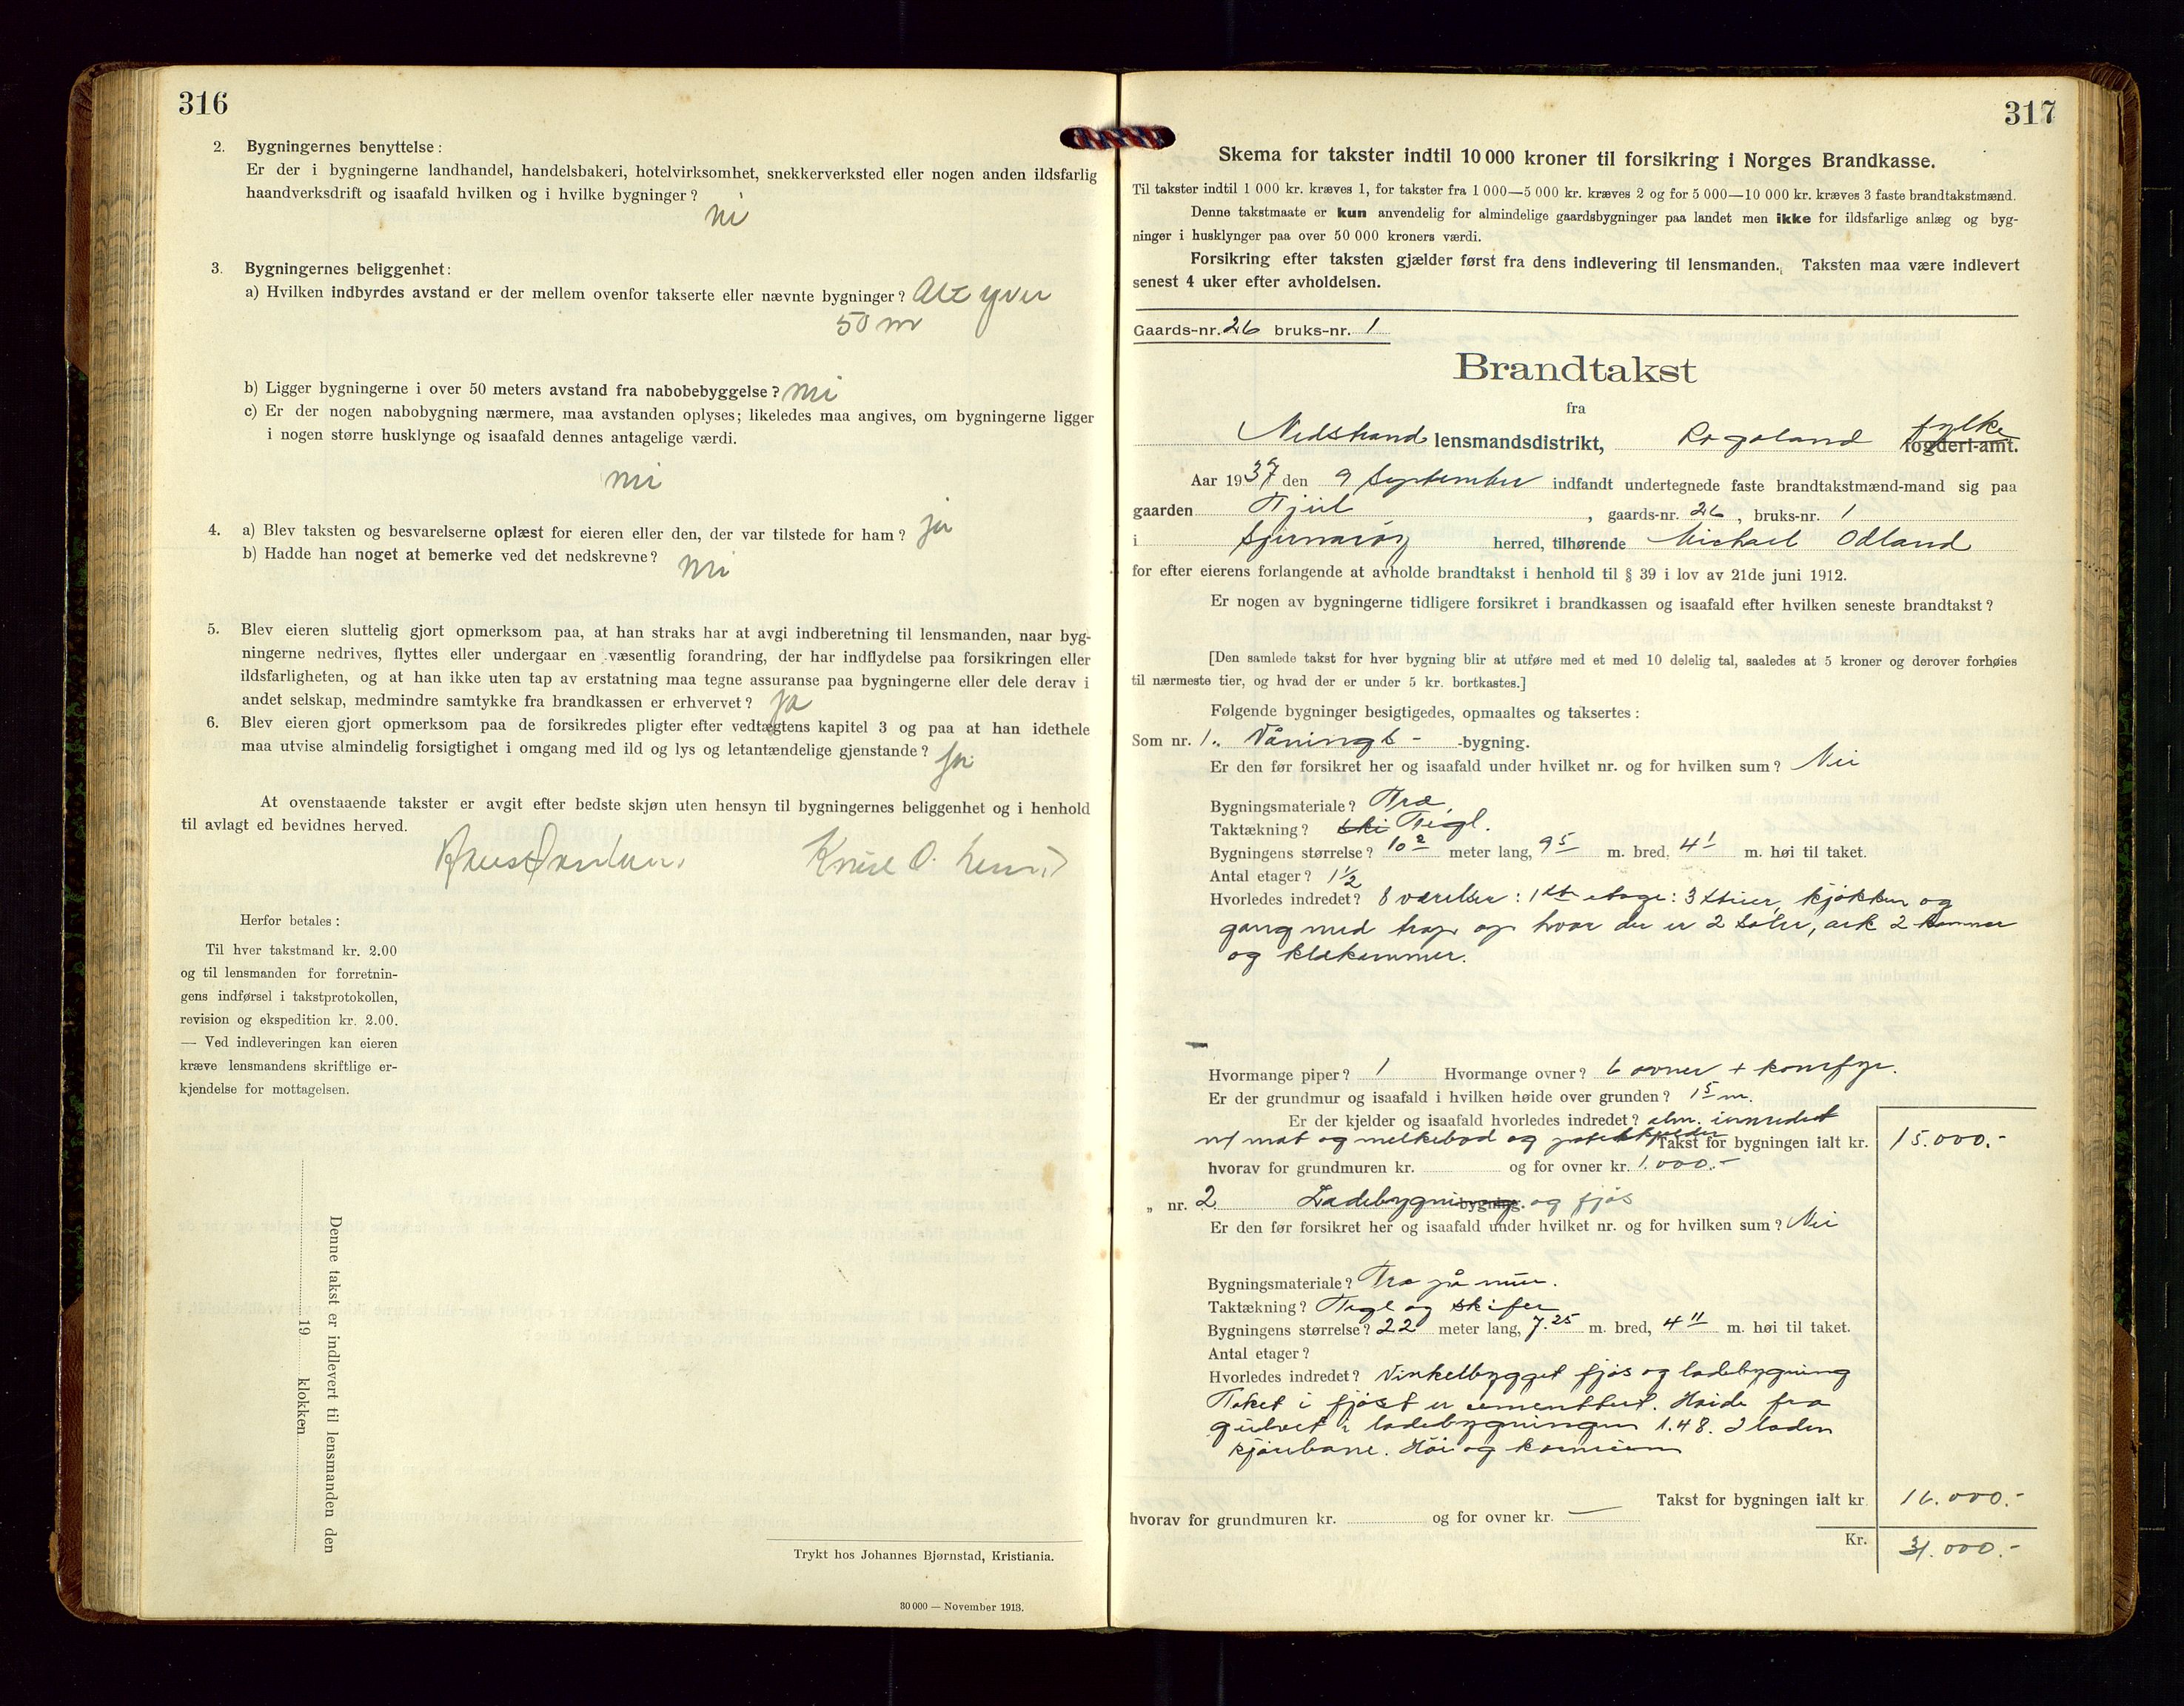 316
2. Bygningernes benyttelse:
Er der i bygningerne landhandel, handelsbakeri, hotelvirksomhet, snekkerverksted eller nogen anden ildsfarlig
haandverksdrift og isaafald hvilken og i hvilke bygninger? nei
3. Bygningernes beliggenhet:
a) Hvilken indbyrdes avstand er der mellem ovenfor takserte eller nævnte bygninger? Alt yver
50 m
b) Ligger bygningerne i over 50 meters avstand fra nabobebyggelse? nei
c) Er der nogen nabobygning nærmere, maa avstanden oplyses; likeledes maa angives, om bygningerne ligger
i nogen større husklynge og isaafald dennes antagelige værdi.
nei
4. a) Blev taksten og besvarelserne oplæst for eieren eller den, der var tilstede for ham? ja
b) Hadde han noget at bemerke ved det nedskrevne? nei
5. Blev eieren sluttelig gjort opmerksom paa, at han straks har at avgi indberetning til lensmanden, naar byg-
ningerne nedrives, flyttes eller undergaar en væsentlig forandring, der har indflydelse paa forsikringen eller
ildsfarligheten, og at han ikke uten tap av erstatning maa tegne assuranse paa bygningerne eller dele derav i
andet selskap, medmindre samtykke fra brandkassen er erhvervet? ja
6. Blev eieren gjort opmerksom paa de forsikredes pligter efter vedtægtens kapitel 3 og paa at han idethele
maa utvise almindelig forsigtighet i omgang med ild og lys og letantændelige gjenstande? ja
At ovenstaaende takster er avgit efter bedste skjøn uten hensyn til bygningernes beliggenhet og i henhold
til avlagt ed bevidnes herved.
Knut O.
Herfor betales:
Til hver takstmand kr. 2.00
og til lensmanden for forretnin-
gens indførsel i takstprotokollen,
revision og ekspedition kr. 2.00.
— Ved indleveringen kan eieren
kræve lensmandens skriftlige er-
kjendelse for mottagelsen.
Denne takst er indlevert til lensmanden den
19 klokken
Trykt hos Johannes Bjørnstad, Kristiania.
30 000 — November 1913.
317
Skema for takster indtil 10 000 kroner til forsikring i Norges Brandkasse.
Til takster indtil 1 000 kr. kræves 1, for takster fra 1 000—5 000 kr. kræves 2 og for 5 000—10 000 kr. kræves 3 faste brandtakstmænd.
Denne takstmaate er kun anvendelig for almindelige gaardsbygninger paa landet men ikke for ildsfarlige anlæg og byg-
ninger i husklynger paa over 50 000 kroners værdi.
Forsikring efter taksten gjælder først fra dens indlevering til lensmanden. Taksten maa være indlevert
senest 4 uker efter avholdelsen.
Gaards-nr. 26 bruks-nr. 1
Brandtakst
fra
Nedstrand lensmandsdistrikt, Rogaland fylke fogderi-amt.
Aar 1937 den 9 September indfandt undertegnede faste brandtakstmænd-mand sig paa
gaarden Tjul, gaards-nr. 26, bruks-nr. 1
i Sjernarøy herred, tilhørende Michael Odland
for efter eierens forlangende at avholde brandtakst i henhold til § 39 i lov av 21de juni 1912.
Er nogen av bygningerne tidligere forsikret i brandkassen og isaafald efter hvilken seneste brandtakst?
[Den samlede takst for hver bygning blir at utføre med et med 10 delelig tal, saaledes at 5 kroner og derover forhøies
til nærmeste tier, og hvad der er under 5 kr. bortkastes.]
Følgende bygninger besigtigedes, opmaaltes og taksertes:
Som nr. 1. Vånings- -bygning.
Er den før forsikret her og isaafald under hvilket nr. og for hvilken sum? Nei
Bygningsmateriale? Træ.
Taktækning? ski Tegl.
Bygningens størrelse? 10 2 meter lang, 9 5 m. bred, 4 1 m. høi til taket.
Antal etager? 1 1/2
Hvorledes indredet? 8 værelser: 1ste etage: 3 stuer, kjøkken og
gang med trap op hvor der er 2 saler, ark 2 kammer
og klækammer.
Hvormange piper? 1 Hvormange ovner? 6 ovner + komfyr.
Er der grundmur og isaafald i hvilken høide over grunden? 1 5 m.
Er der kjelder og isaafald hvorledes indredet? alm. innredet
m/ mat og melkebod og potetkjelder Takst for bygningen ialt kr. 15.000.-
hvorav for grundmuren kr. og for ovner kr. 1.000.-
„ nr. 2 Ladebygning bygning. og fjøs
Er den før forsikret her og isaafald under hvilket nr. og for hvilken sum? Nei
Bygningsmateriale? Træ på mur.
Taktækning? Tegl og skifer
Bygningens størrelse? 22 meter lang, 7.25 m. bred, 4 11 m. høi til taket.
Antal etager?
Hvorledes indredet? Vinkelbygget fjøs og ladebygning
Taket i fjøset er sementert. Høide fra
gulvet i ladebygningen 1.48. I laden
kjørebane. Høi og kornrum
Takst for bygningen ialt kr. 16.000.-
hvorav for grundmuren kr. og for ovner kr. —
Kr. 31.000.-